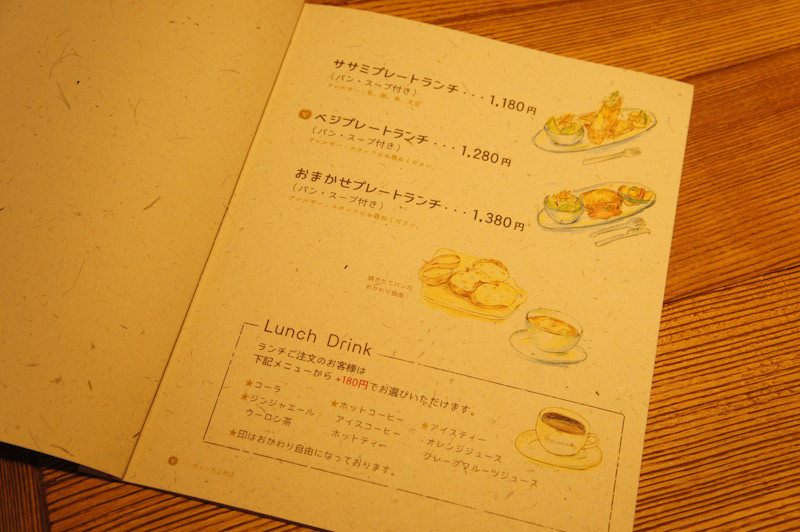 ササミプレートランチ・・・1,180円
（パン・スープ付き）
ベジプレートランチ・・・1,280円
（パン・スープ付き）
おまかせプレートランチ・・・1,380円
（パン・スープ付き）
焼きたてパンが
おかわり自由！
Lunch Drink
ランチご注文のお客様は
下記メニューから +180円でお選びいただけます。
★コーラ ★ホットコーヒー ★アイスティー
★ジンジャエール アイスコーヒー オレンジジュース
ウーロン茶 ホットティー グレープフルーツジュース
★印はおかわり自由になっております。